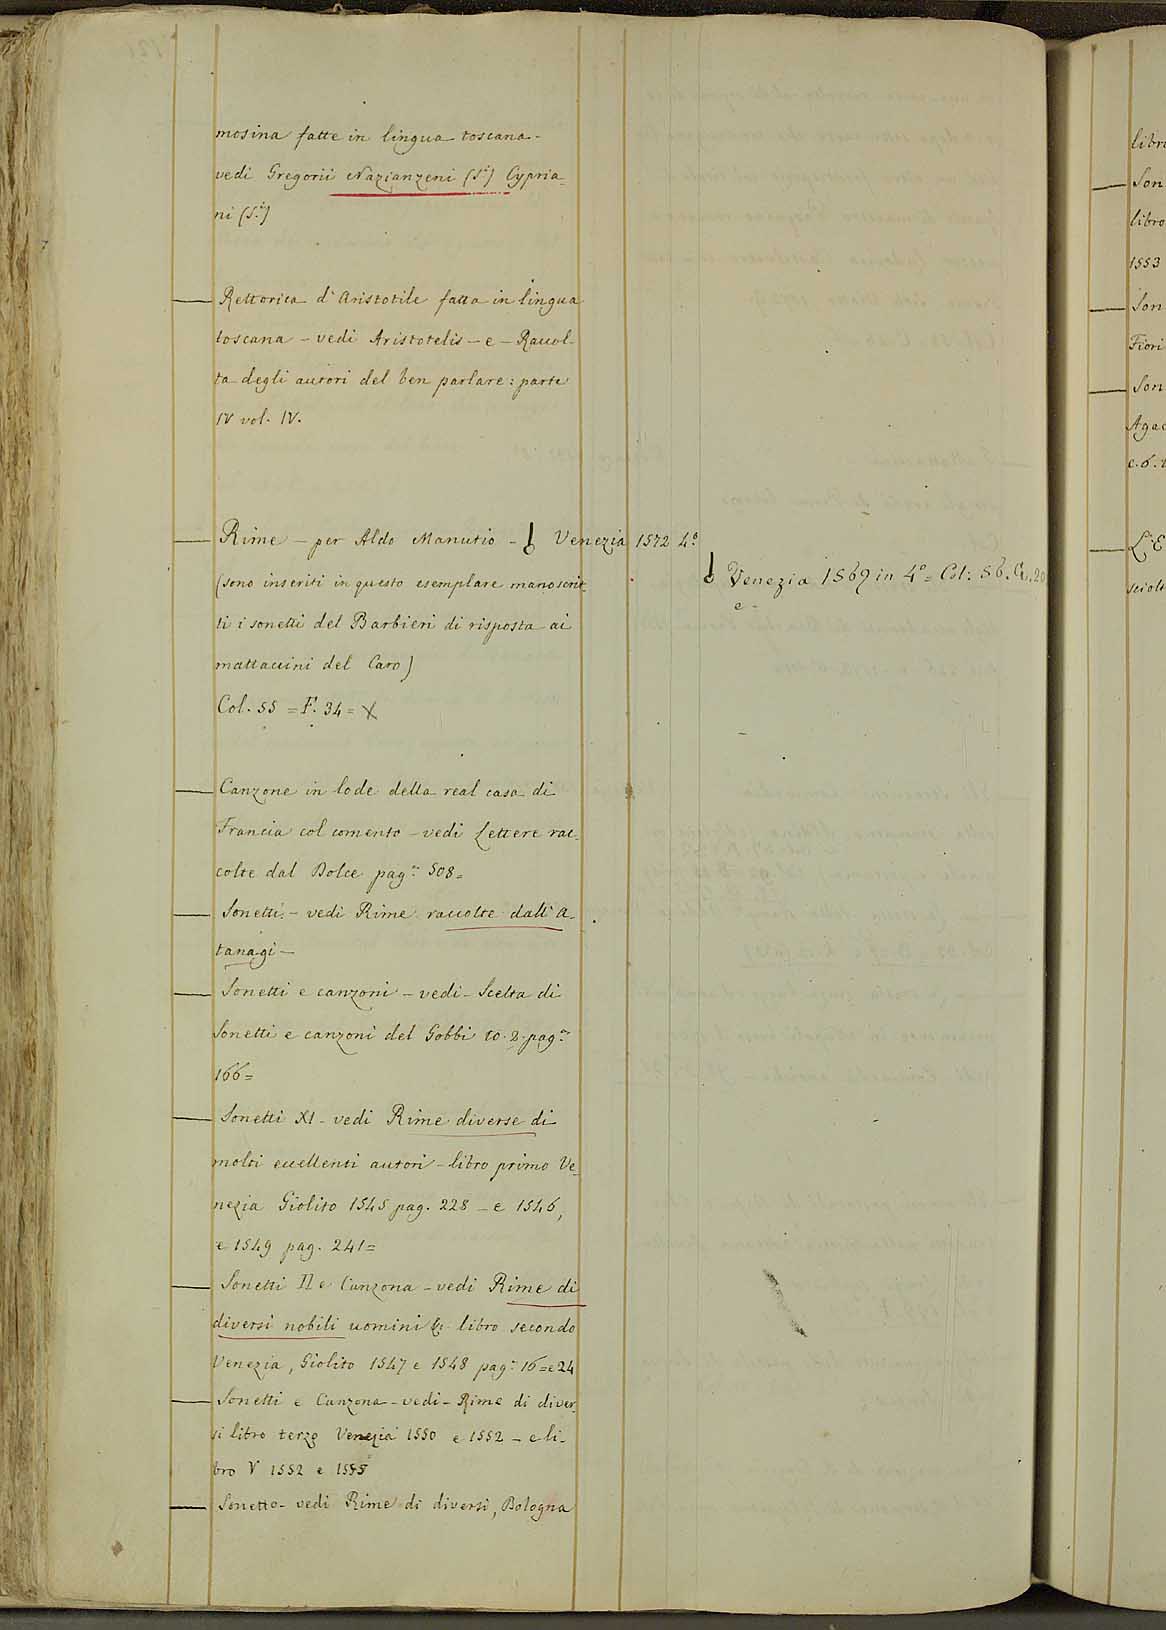 mosina fatte in lingua toscana -
vedi Gregorii Nazianzeni (S.i) Cypria-
ni (S.i)
— Rettorica d'Aristotile fatta in lingua
toscana - vedi Aristotelis - e - Raccol-
ta degli autori del ben parlare: parte
IV vol. IV.
— Rime - per Aldo Manutio - Venezia 1572 4.o
(sono inseriti in questo esemplare manoscrit-
ti i sonetti del Barbieri di risposta ai
mattaccini del Caro)
Col. 55 = F. 34 = X
Venezia 1569 in 4o = Col: 56. G. 20
e -
— Canzone in lode della real casa di
Francia col comento - vedi Lettere rac-
colte dal Dolce pag.a 508 =
— Sonetti - vedi Rime raccolte dall'A-
tanagi —
— Sonetti e canzoni - vedi - Scelta di
Sonetti e canzoni del Gobbi to. 2. pag.a
166 =
— Sonetti XI - vedi Rime diverse di
molti eccellenti autori - libro primo Ve-
nezia Giolito 1545 pag. 228 - e 1546,
e 1549 pag. 241 =
— Sonetti II e Canzona - vedi Rime di
diversi nobili uomini &c libro secondo
Venezia, Giolito 1547 e 1548 pag.a 16 = e 24
— Sonetti e Canzona - vedi - Rime di diver-
si libro terzo Venezia 1550 e 1552 - e li-
bro V 1552 e 1555
— Sonetto - vedi Rime di diversi, Bologna
libro
— Son
libro
1553
— Son
Fiori
— Son
Agac
e. 6.
— L'E
sciolt